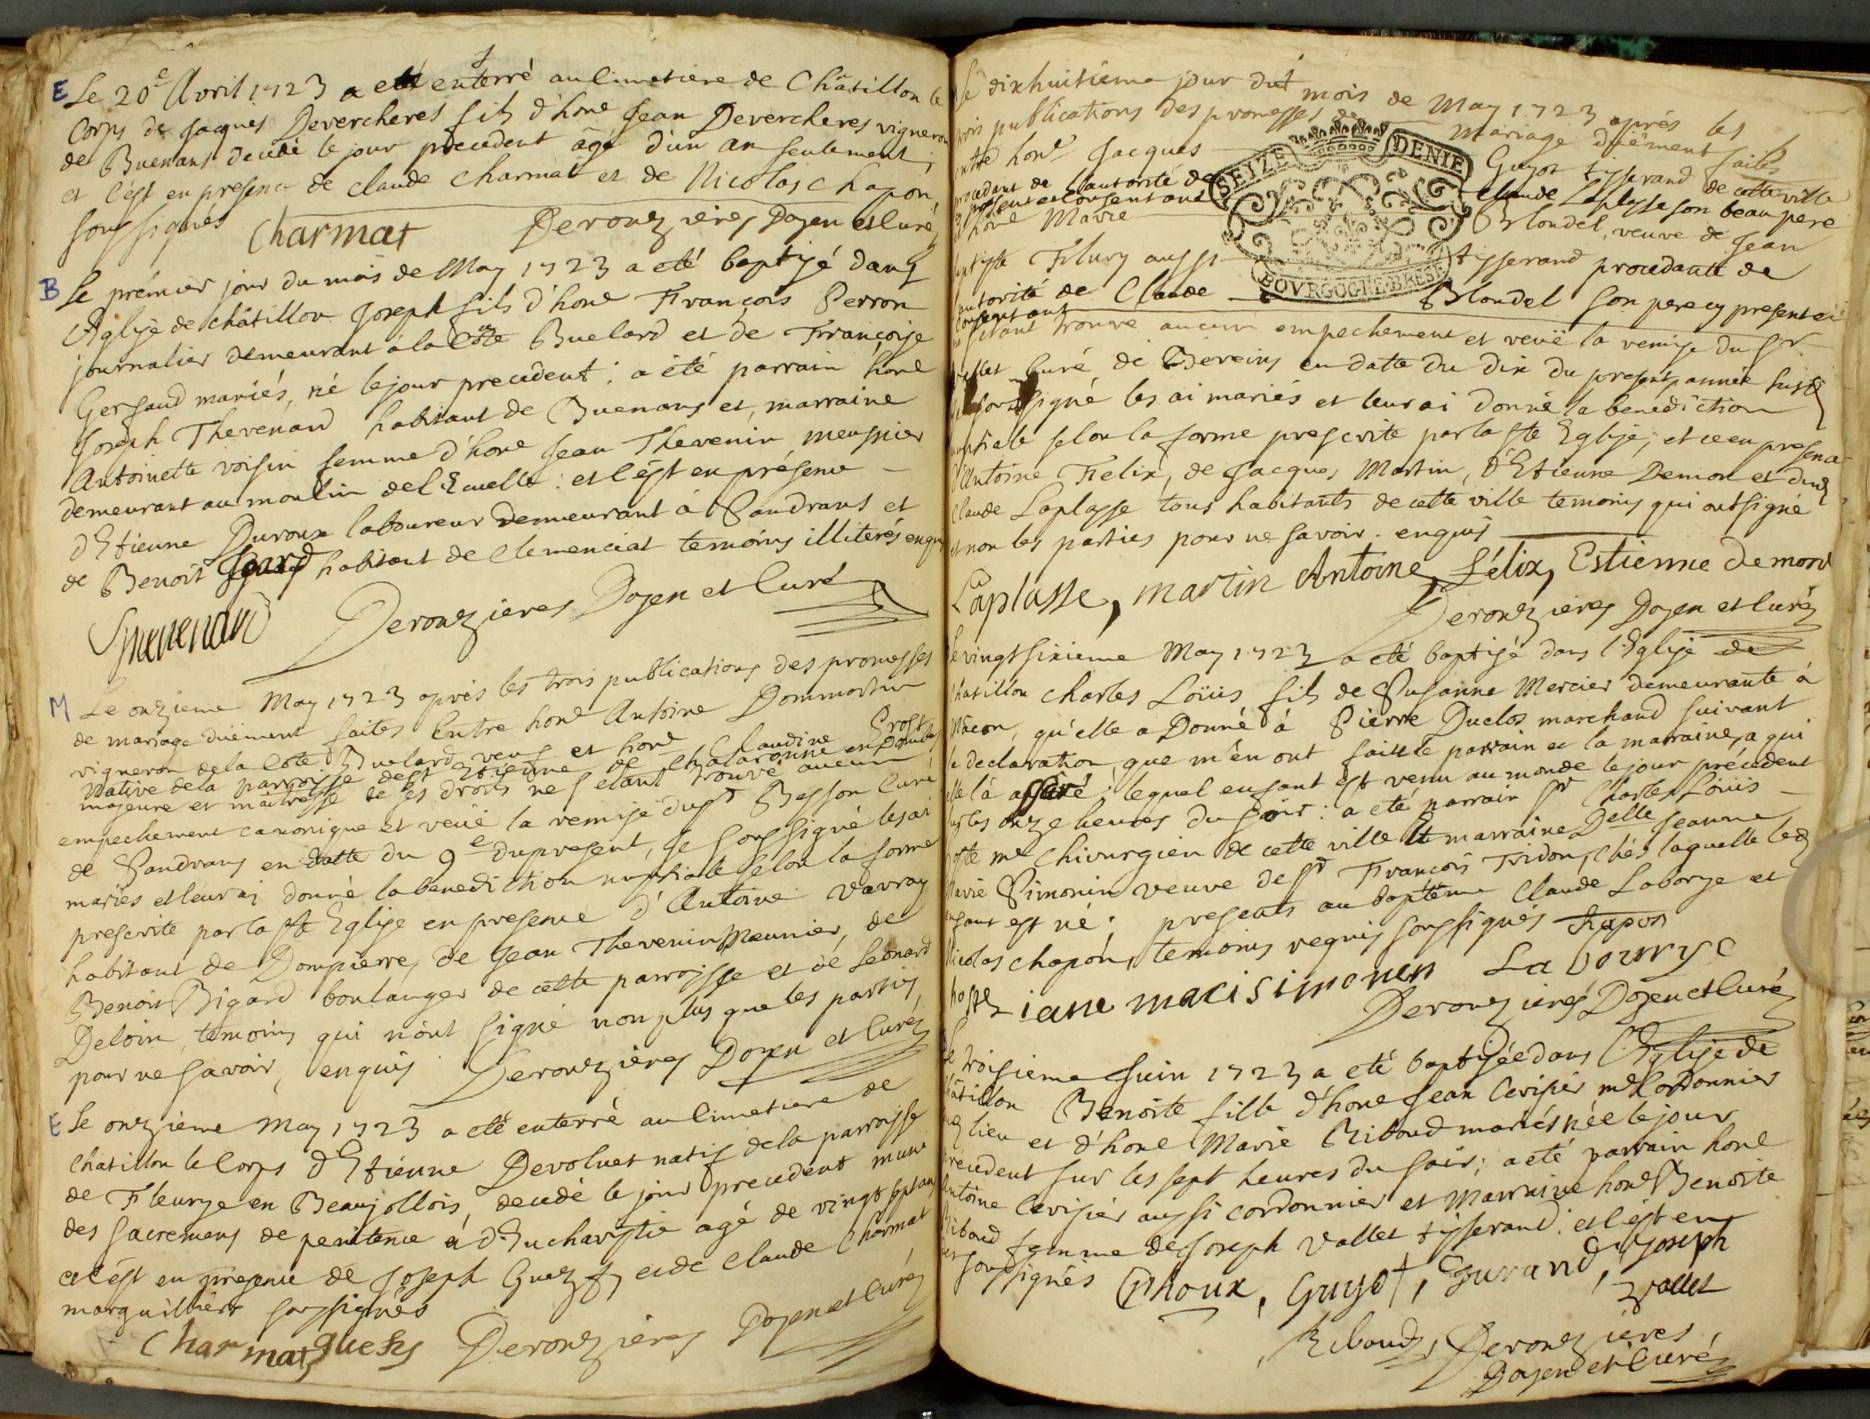 E Le 20e Avril 1723 a eté enterré au Cimetiere de Châtillon le
Corps de Jacques Devercheres fils d'hone Jean Devercheres vigneron
de Buenans decedé le jour precedent âgé d'un an seulement;
et c'est en presence de Claude Charmat et de Nicolas Chapon,
soussignés Charmat Derouzieres Doyen et Curé
B Le premier jour du mois de May 1723 a eté baptisé dans
l'Eglise de châtillon Joseph fils d'hone François Perron
journalier demeurant à la Côte Buelard et de Françoise
Gersaud mariés, né le jour precedent: a été parrain hone
Joseph Thevenard habitant de Buenans et marraine
Antoinette voisin femme d'hone Jean Thevenin meusnier
demeurant au moulin de l'Ecuelle: et c'est en présence
d'Etienne Duroux laboureur demeurant à Sandrans et
de Benoit habitant de Clemenciat temoins illiterés enquis
Thevenard Derouzieres Doyen et Curé
M Le onzieme May 1723 aprés les trois publications des promesses
de mariage duëment faites Entre hone Antoine Dommartin
vigneron de la Côte Buelard veuf et hone Claudine Prost
Native de la parroisse de St Etienne de Chalaronne en Dombes
majeure et maitresse de ses droits ne s'etant trouvé aucun
empechement canonique et veuë la remise du Sr Besson Curé
de Sandrans en datte du 9e du present, je soussigné les ai
mariés et leur ai donné la benediction nuptiale selon la forme
prescrite par la Ste Eglise en presence d'Antoine Vavray
habitant de Dompierre, de Jean Thevenin Meunier, de
Benoit Bigard boulanger de cette parroisse et de Leonard
Deloin, temoins qui n'ont signé non plus que les parties
pour ne savoir, enquis Derouzieres Doyen et Curé
E Le onzieme May 1723 a eté enterré au Cimetiere de
Chatillon le Corps d'Etienne Devoluet natif de la parroisse
de Fleurye en Beaujollois, decedé le jour precedent muni
des sacremens de penitence et d'Eucharistie agé de vingt sept ans
et c'est en presence de Joseph et de Claude Charmat
marguillier soussignés
Charmat Derouzieres Doyen et Curé
Le dixhuitieme jour du mois de May 1723 aprés les
trois publications des promesses de mariage duëment faites
entre hone Jacques Guyot tisserand de cette ville
procedant de l'autorité de Claude Laplasse son beau pere
cy present et consentant
et hone Marie Blondel, veuve de Jean
Fleury aussi tisserand procedante de
l'autorité de Claude Blondel son pere cy present et
consentant
ne s'etant trouvé aucun empechement et veuë la remise du Sr
Curé de Bereins en date du dix du present année susd
Je soussigné les ai mariés et leur ai donné la benediction
nuptiale selon la forme prescrite par la Ste Eglise; et ce en presence
d'Antoine Felix, de Jacques Martin, d'Etienne Demon et dud
Claude Laplasse tous habitants de cette ville temoins qui ont signé
et non les parties pour ne savoir. enquis
Laplasse, martin Antoine Félix, Estienne Demon
Derouzieres Doyen et Curé
Le vingt sixieme May 1723 a eté baptisé dans l'Eglise de
Chatillon Charles Loüis fils de Susanne Mercier demeurante à
Mâcon, qu'elle a Donné à Pierre Duclos marchand suivant
la declaration que m'en ont faitte le parrain et la marraine, a qui
elle l'a: lequel enfant est venu au monde le jour précedent
sur les onze heures du soir: a eté parrain Sr Charles Loüis
me Chirurgien de cette ville et marraine Delle Jeanne
Marie Simonin veuve de Sr François Tridon, chés laquelle led
enfant est né; presents au baptême Claude Laborye et
Nicolas chapon, temoins requis soussignés Chapon
iane mari simonen La bourye
Derouzieres Doyen et Curé
Le troisieme Juin 1723 a eté baptisée dans l'Eglise de
Châtillon Benoite fille d'hone Jean Cerisier me Cordonnier
lieu et d'hone Marie Riboud mariés née le jour
precedent sur les sept heures du soir; a eté parrain hone
Antoine Cerisier aussi cordonnier et marraine hone Benoite
Riboud femme de Joseph Vallet tisserand: et c'est en
soussignés Choux, Guyot, Gurand, Joseph
vallet
Riboud, Derouzieres
Doyen et Curé
SEIZE DENIE
BOVRGOGNE BRESE